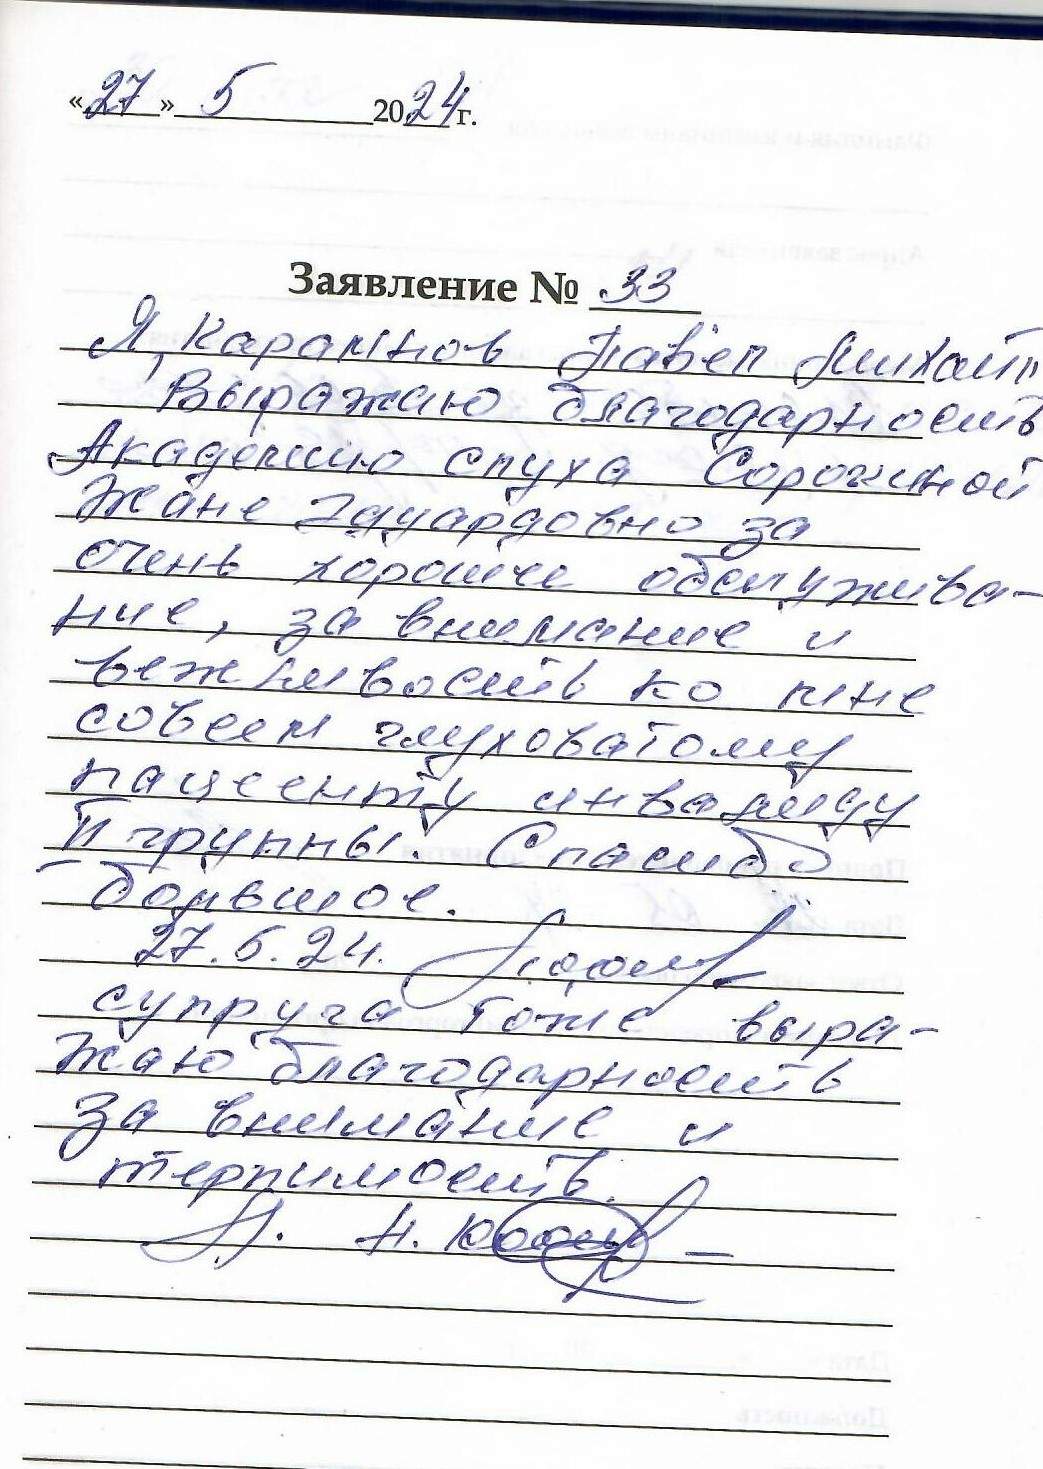 «27» 5 2024 г.
Заявление № 33
Я, Карамнов Павел Михайл
Выражаю благодарность
Академию слуха Сорокиной
Жане Эдуардовно за
очень хорошее обслужива-
ние, за внимание и
вежливость ко мне
совсем глуховатому
пацеенту инвалиду
II группы. Спасибо
большое.
27.5.24.
супруга тоже выра-
жаю благодарность
за внимание и
терпимость.